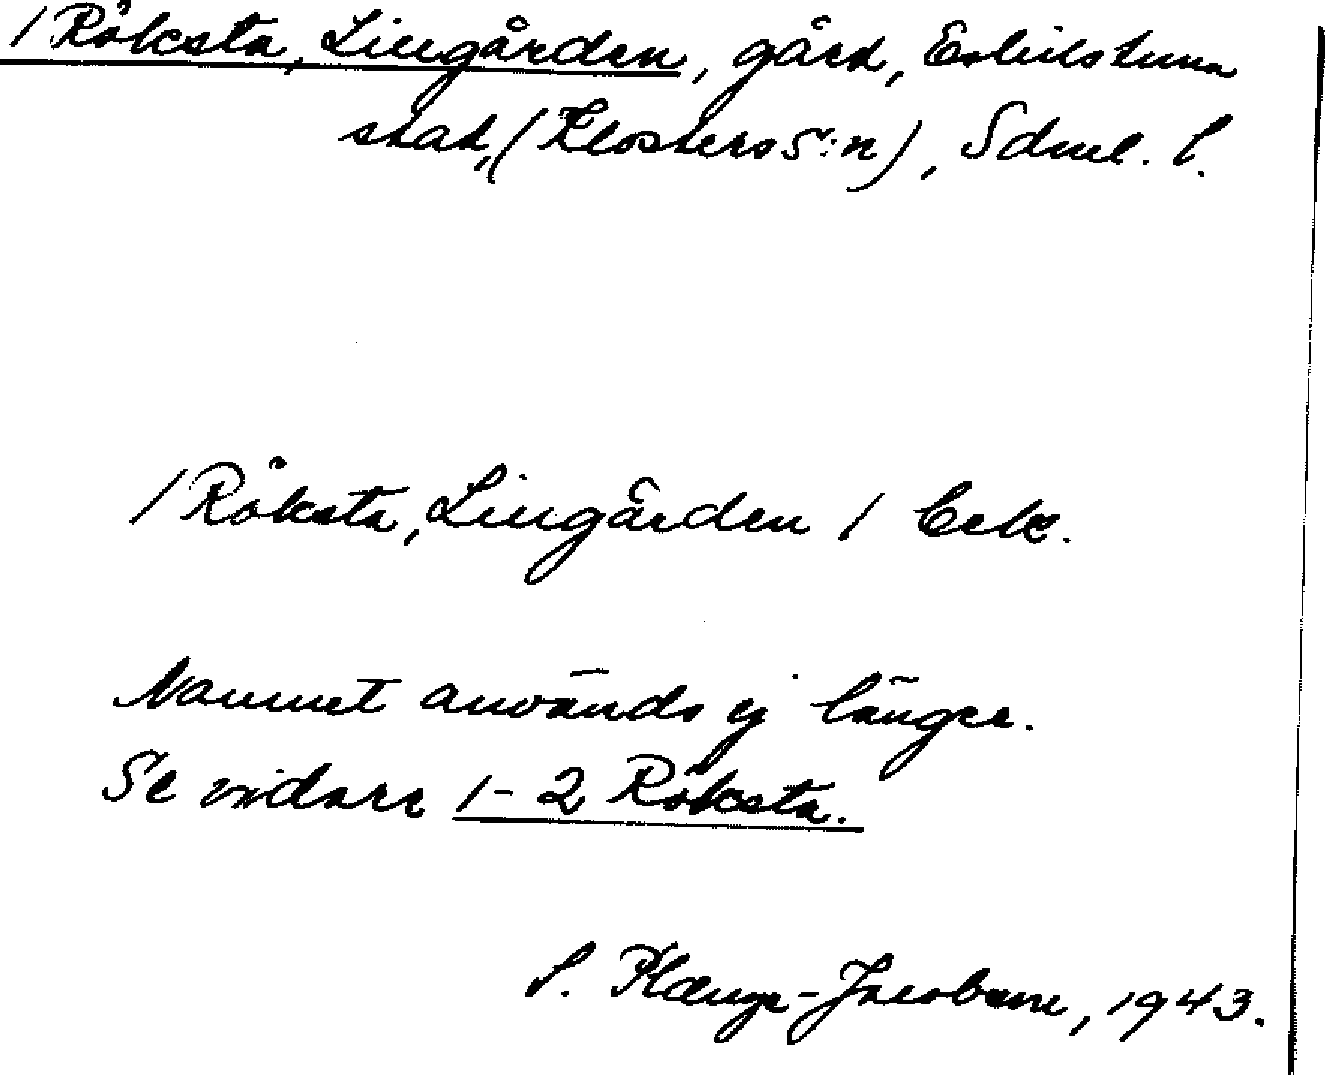 1 Röksta, Lingården, gård, Eskilstuna
stad, (Klosters s:n), Sdml. l.
1 Röksta, Lingården / Eck.
Namnet används ej länger.
Se vidare 1-2 Röksta.
S. Plænge-Jacobsen, 1943.